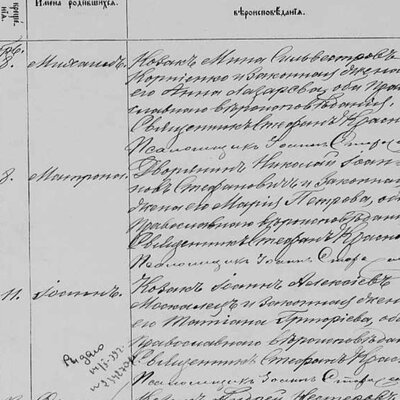 креще-
нія.
Имена родившихся.
вѣроисповѣданія.
8.
Михаилъ.
Козакъ Мина Сильвестровъ
Корніенко и законная жена
его Анна Лазарева, оба Пра-
славнаго вѣроисповѣданія.
Священникъ Стефанъ Красн
Псаломщикъ Іоаннъ
8.
Матрона.
Дворянинъ Николай Іоан-
новъ Стефановичъ и законная
жена его Марія Петрова, об
Православнаго вѣроисповѣдан
Священникъ Стефанъ Красно
Псаломщикъ Іоаннъ
11.
Іоаннъ.
Козакъ Іоаннъ Алексѣевъ
Москалецъ и законная жен
его Татіана Григоріева, об
Православнаго вѣроисповѣдан
Священникъ Стефанъ Крас
Псаломщикъ Іоаннъ
Видано
Несторовъ